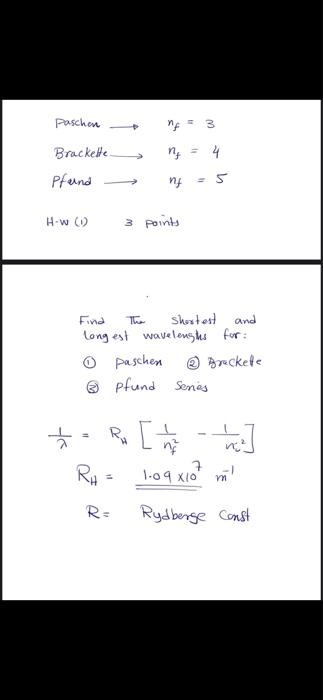 Paschen → nf = 3
Brackette → nf = 4
Pfund → nf = 5
H.W (1) 3 points
Find The Shortest and
longest wavelengths for:
① paschen ② Brackette
③ Pfund Series
1/λ = RH [ 1/nf² - 1/ni² ]
RH = 1.09 x10⁷ m⁻¹
R= Rydberge Const